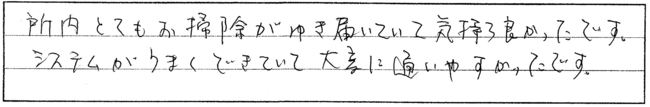 所内とてもお掃除がゆき届いていて気持ち良かったです。
システムがうまくできていて大変に通いやすかったです。